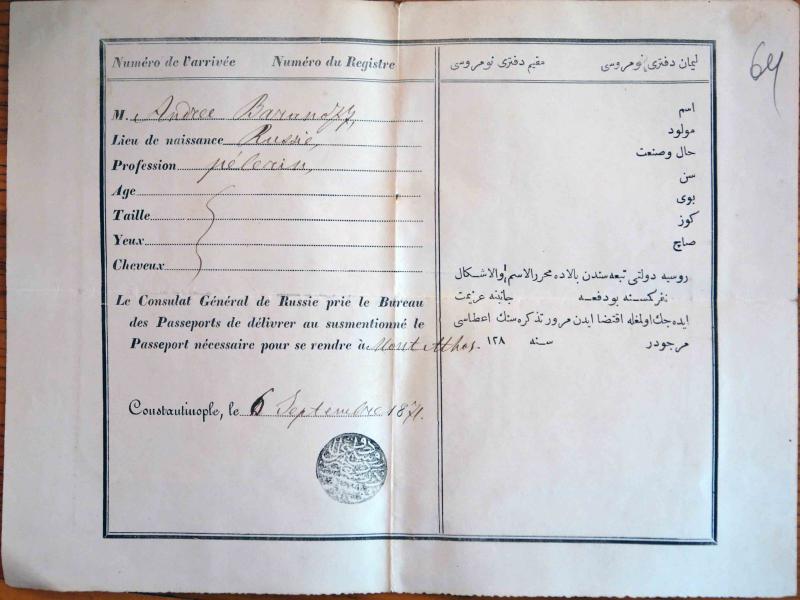 Numéro de l'arrivée Numéro du Registre
M. Andree Baranoff,
Lieu de naissance Russie,
Profession pélerin,
Age
Taille
Yeux
Cheveux
Le Consulat Général de Russie prié le Bureau
des Passeports de délivrer au susmentionné le
Passeport nécessaire pour se rendre à Mont Athos.
Constantinople, le 6 Septembre 1871.
ليمان دفتری نومروسی مقيم دفتری نومروسی
64
اسم
مولود
حال وصنعت
سن
بوی
كوز
صاچ
روسيه دولتی تبعه سندن بالاده محرر الاسم والاشكال
نفركسنه بودفعه جانبنه عزيمت
ايده جك اولمغله اقتضا ايدن مرور تذكره سنك اعطاسی
مرجودر سنه ١٢٨